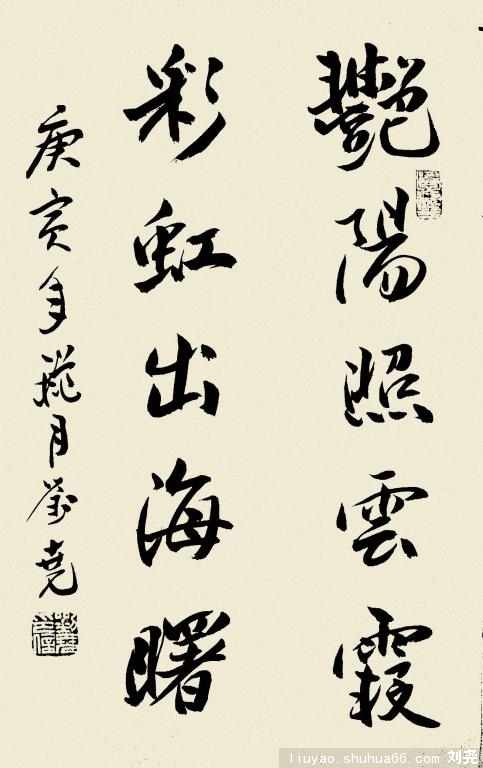 艷陽照雲霞
彩虹出海曙
庚寅年菊月劉堯
liuyao.shuhua66.com 刘尧